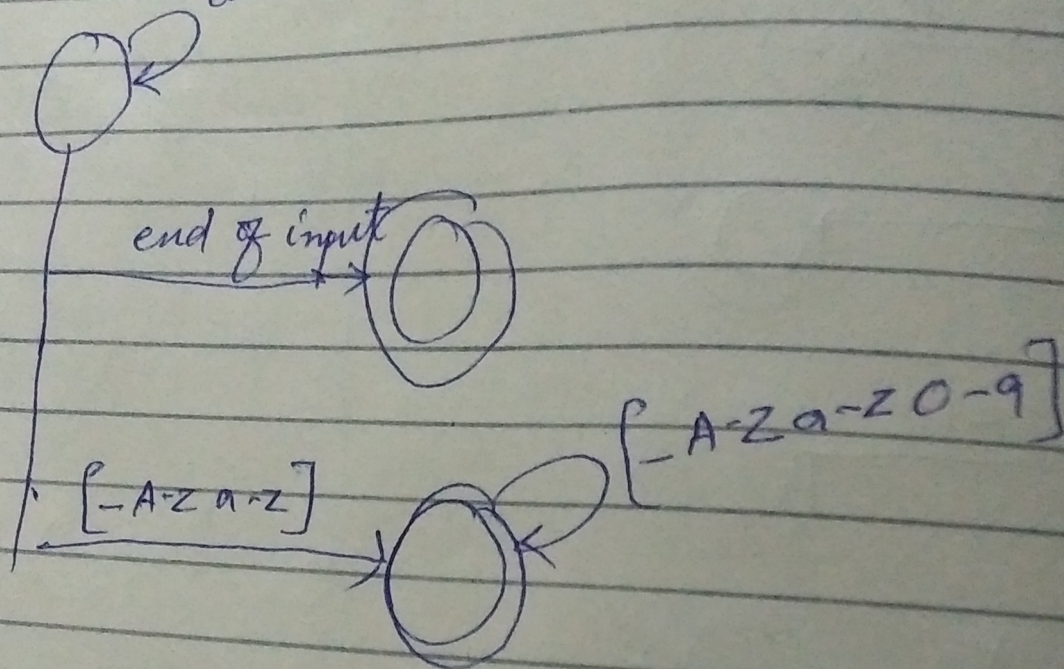 end of input
[_A-Za-z0-9]
[_A-Za-z]